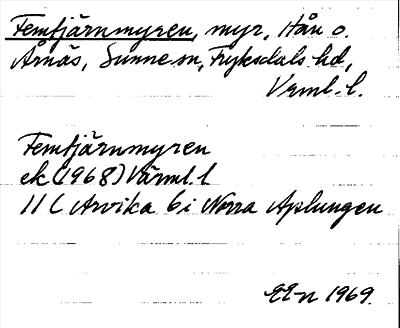 Femtjärnmyren, myr, Hån o.
Årnäs, Sunne sn, Fryksdals hd,
Vrml. l.
Femtjärnmyren
ek (1968) Värml. l
11 C Arvika 6 i Norra Aplungen
1969.